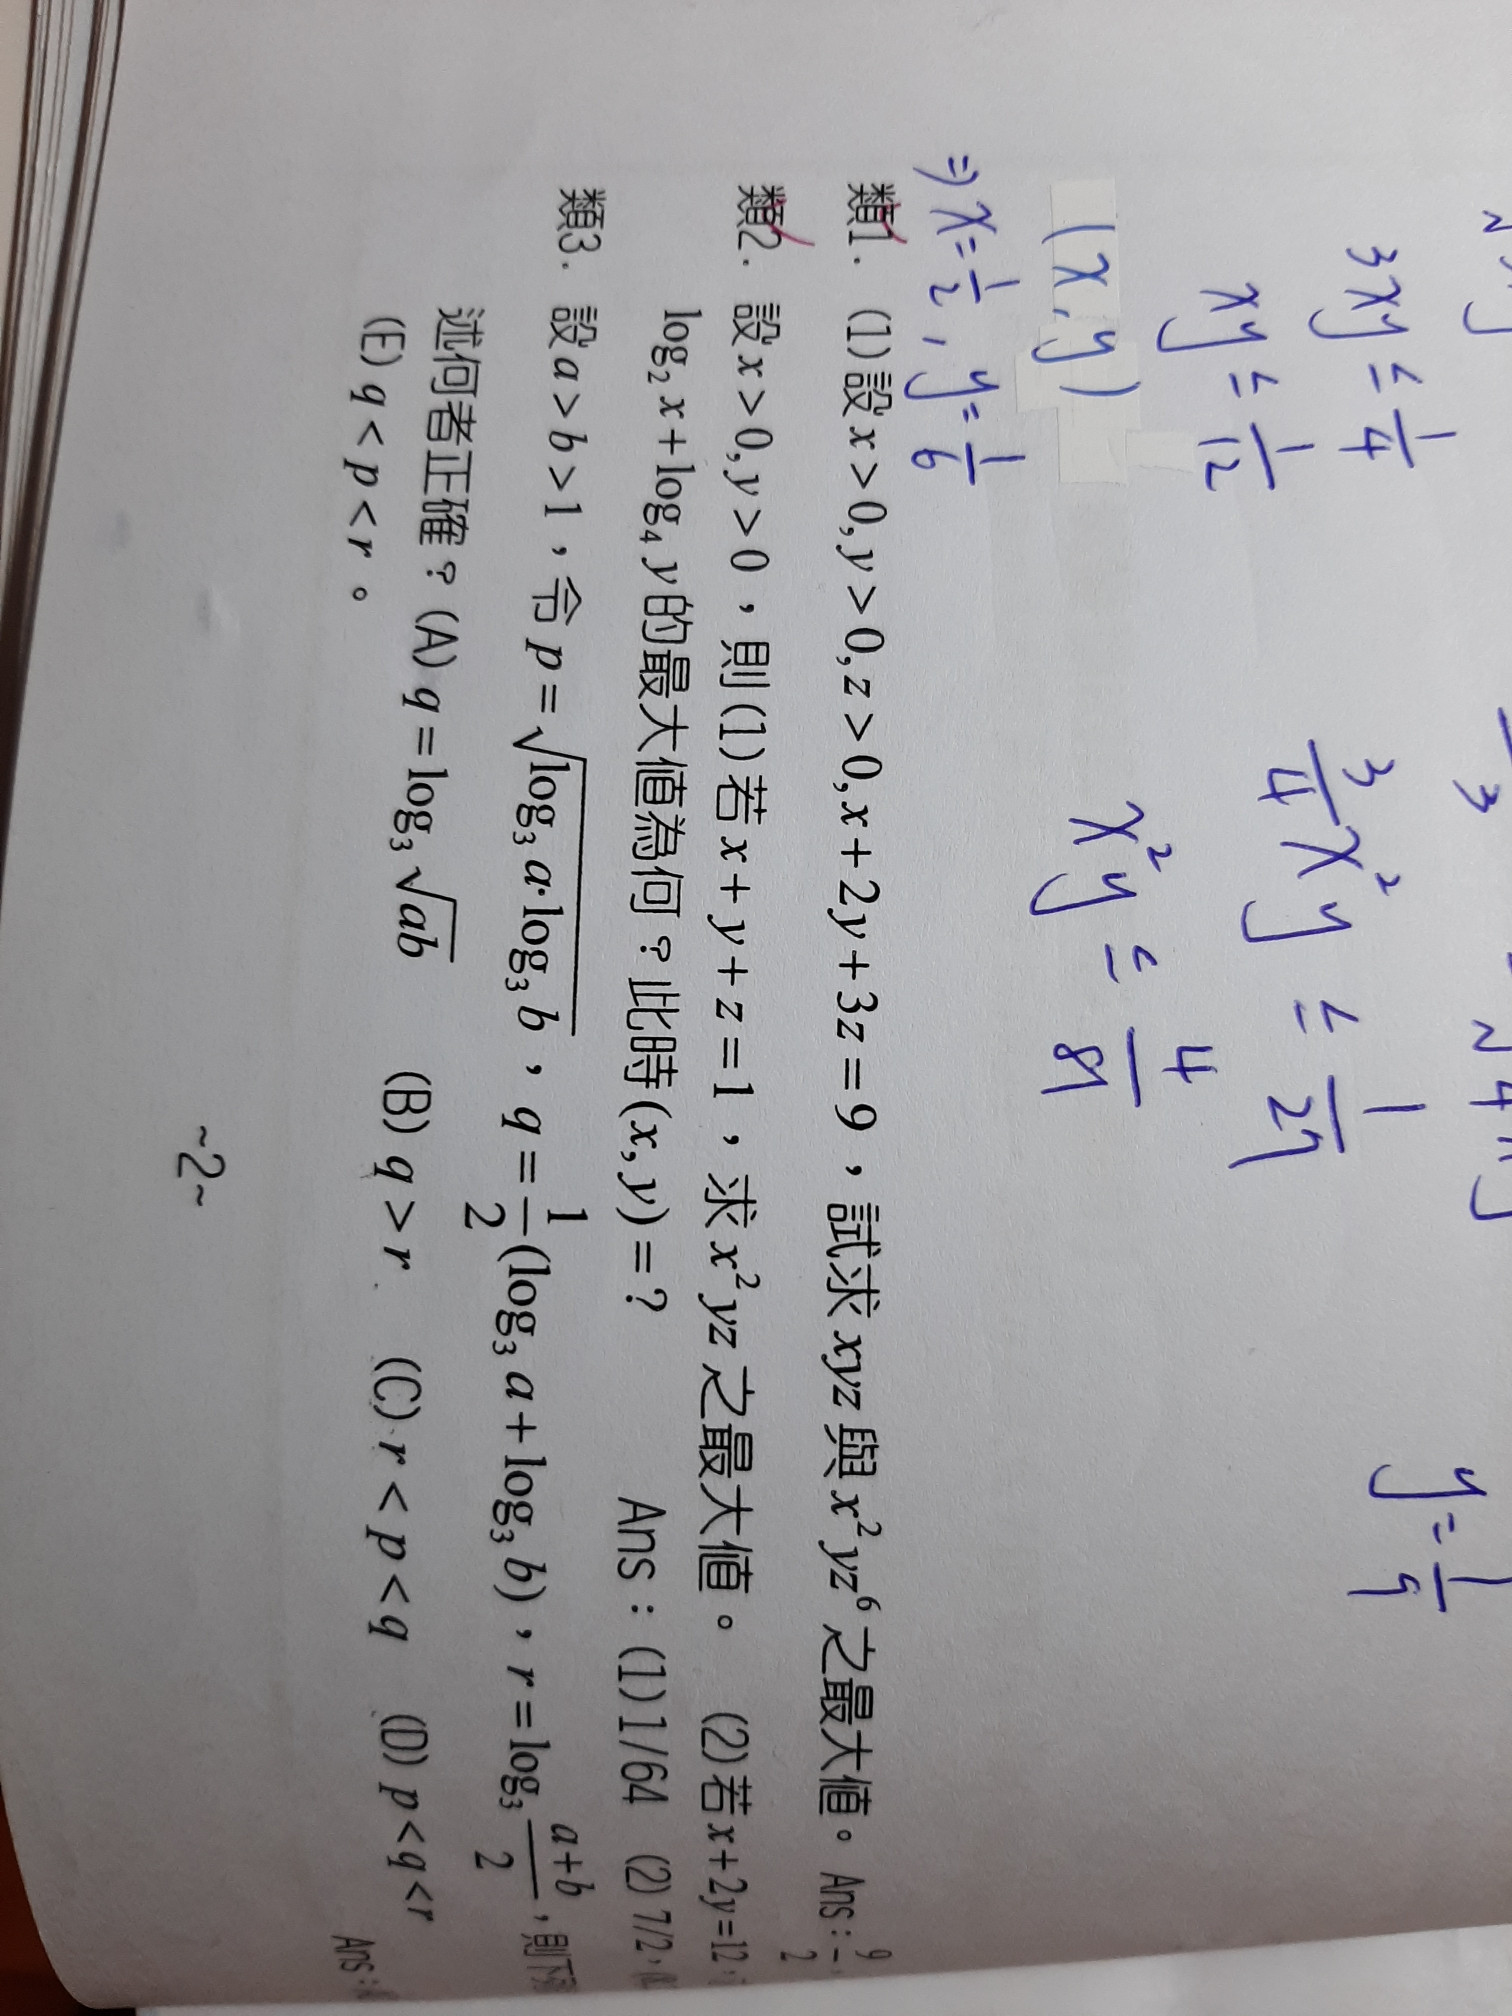 3xy ≤ 1/4
xy ≤ 1/12
(x, y)
⇒ x = 1/2 , y = 1/6
3/4 x²y ≤ 1/27
x²y ≤ 4/81
y = 1/9
類1. (1)設 x > 0, y > 0, z > 0, x + 2y + 3z = 9，試求 xyz 與 x²yz⁶ 之最大值。 Ans：9/2
類2. 設 x > 0, y > 0，則(1)若 x + y + z = 1，求 x²yz 之最大值。 (2)若 x + 2y = 12
log₂ x + log₄ y 的最大值為何？此時(x, y) = ? Ans：(1)1/64 (2) 7/2,
類3. 設 a > b > 1，令 p = √(log₃ a·log₃ b)，q = 1/2 (log₃ a + log₃ b)，r = log₃ (a+b)/2，則下
述何者正確？(A) q = log₃ √(ab) (B) q > r (C) r < p < q (D) p < q < r
(E) q < p < r。
Ans：
~2~